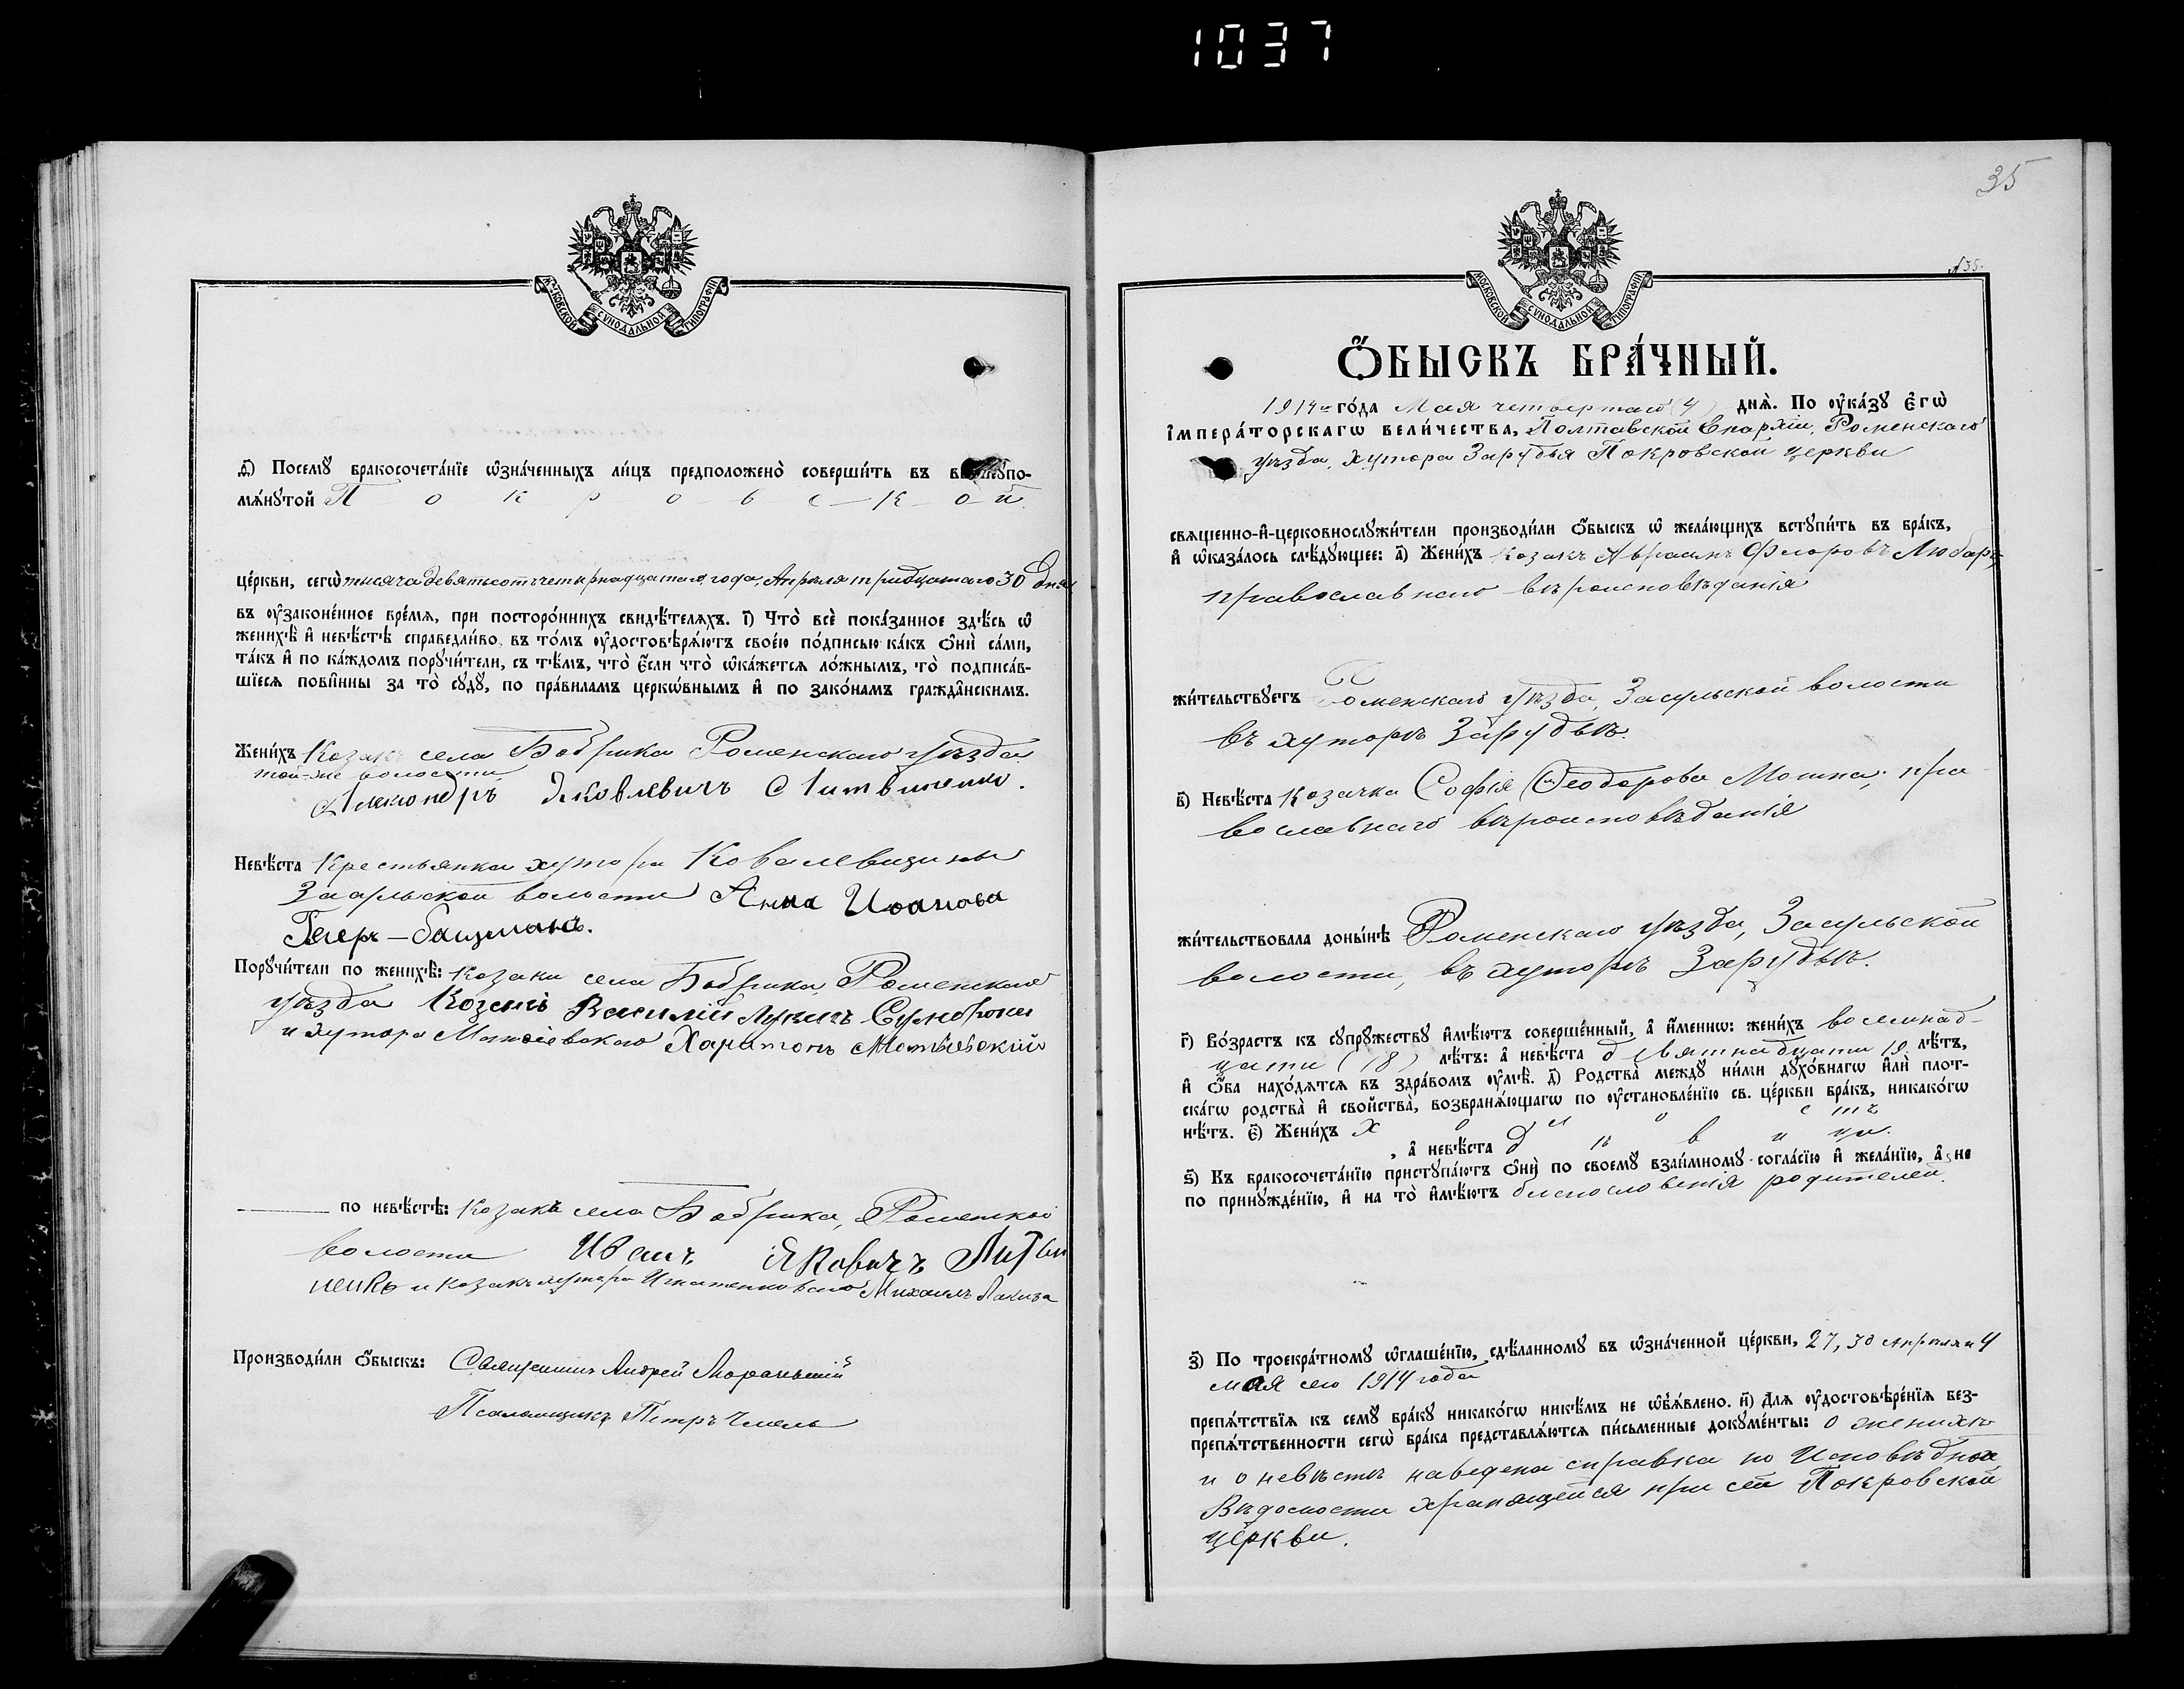 1037
МОСКОВСКОЙ СУНОДАЛЬНОЙ ТИПОГРАФІИ
д҃) Посемꙋ̀ бракосочета́нїе ѡ҆зна́ченныхъ ли́цъ предположено̀ соверши́ть въ вышеꙋпо-
мѧ́нꙋтой Покровской
це́ркви, сегѡ̀ тысяча девятьсотъ четырнадцатаго года, Апрѣля тридцатаго 30 дня
въ ᲂу҆зако́ненное вре́мѧ, при посторо́ннихъ свидѣ́телѧхъ. і҃) Что̀ всѐ пока́занное здѣ́сь ѡ҆
женихѣ̀ и҆ невѣ́стѣ справедли́во, въ то́мъ ᲂу҆достовѣрѧ́ютъ свое́ю по́дписью ка́къ ѻ҆нѝ са́ми,
та́къ и҆ по ка́ждомъ порꙋчи́тели, съ тѣ́мъ, что̀ є҆́сли что̀ ѡ҆ка́жетсѧ ло́жнымъ, то̀ подписа́в-
шїесѧ пови́нны за то̀ сꙋдꙋ̀, по пра́виламъ церко́внымъ и҆ по зако́намъ гражда́нскимъ.
Жени́хъ Козакъ села Бобрика Роменскаго уѣзда
той-же волости
Александръ Яковлевичъ Литвиненко.
Невѣ́ста Крестьянка хутора Ковалевщины
Засульской волости Анна Иоанова
Порꙋчи́тели по женихѣ̀: козаки села Бобрика, Роменскаго
уѣзда Козакъ Василій Лукичъ
и хутора Харитонъ
по невѣ́стѣ: Козакъ села Бобрика, Роменской
волости Иванъ Яковичъ Литви
ненко и козакъ хутора Игнатенковскаго Михаилъ Лакиза
Производи́ли ѻ҆́быскъ: Священникъ Андрей
Псаломщикъ Петръ Чмель
35
№ 35.
МОСКОВСКОЙ СУНОДАЛЬНОЙ ТИПОГРАФІИ
Ѻ҆́БЫСКЪ БРА́ЧНЫЙ.
1914го го́да Мая четвертаго (4) днѧ̀. По ᲂу҆ка́зꙋ Є҆гѡ̀
І҆мпера́торскагѡ вели́чества, Полтавской Епархіи, Роменскаго
уѣзда, хутора Зарудья Покровской церкви
свѧще́нно-и҆-церковнослꙋжи́тели производи́ли ѻ҆́быскъ ѡ҆ жела́ющихъ встꙋпи́ть въ бра́къ,
и҆ ѡ҆каза́лось слѣ́дꙋющее: а҃) Жени́хъ козакъ Авраамъ Флоровъ Любаръ
православнаго вѣроисповѣданія
жи́тельствꙋетъ Роменскаго уѣзда, Засульской волости
въ хуторѣ Зарудьѣ.
в҃) Невѣ́ста козачка Софія Ѳеодорова Мошна, пра
вославнаго вѣроисповѣданія
жи́тельствовала доны́нѣ Роменскаго уѣзда, Засульской
волости, въ хуторѣ Зарудьѣ.
г҃) Во́зрастъ къ сꙋпрꙋ́жествꙋ и҆мѣ́ютъ соверше́нный, а҆ и҆́меннѡ: жени́хъ восемнад-
цати (18) лѣ́тъ: а҆ невѣ́ста девятнадцати 19 лѣ́тъ,
и҆ ѻ҆́ба нахо́дѧтсѧ въ здра́вомъ ᲂу҆мѣ̀. д҃) Родства̀ междꙋ ни́ми дꙋхо́внагѡ и҆лѝ плот-
ска́гѡ родства̀ и҆ свойства̀, возбранѧ́ющагѡ по ᲂу҆становле́нїю св. це́ркви бра́къ, никако́гѡ
нѣ́тъ. є҃) Жени́хъ холостъ
, а҆ невѣ́ста дѣвица.
ѕ҃) Къ бракосочета́нїю пристꙋпа́ютъ ѻ҆нѝ по своемꙋ̀ взаи́мномꙋ согла́сїю и҆ жела́нїю, а҆ не
по принꙋжде́нїю, и҆ на то̀ и҆мѣ́ютъ благословенія родителей.
з҃) По троекра́тномꙋ ѡ҆глаше́нїю, сдѣ́ланномꙋ въ ѡ҆зна́ченной це́ркви, 27, 30 Апрѣля и 4
мая сего 1914 года
препѧ́тствїѧ къ семꙋ̀ бра́кꙋ никако́гѡ никѣ́мъ не ѡ҆б̾ѧ́влено. и҃) Длѧ ᲂу҆достовѣре́нїѧ без-
препѧ́тственности сегѡ̀ бра́ка представлѧ́ютсѧ пи́сьменные докꙋме́нты: о женихѣ
и о невѣстѣ наведена справка по Исповѣдной
Вѣдомости хранящейся при сей Покровской
церкви.